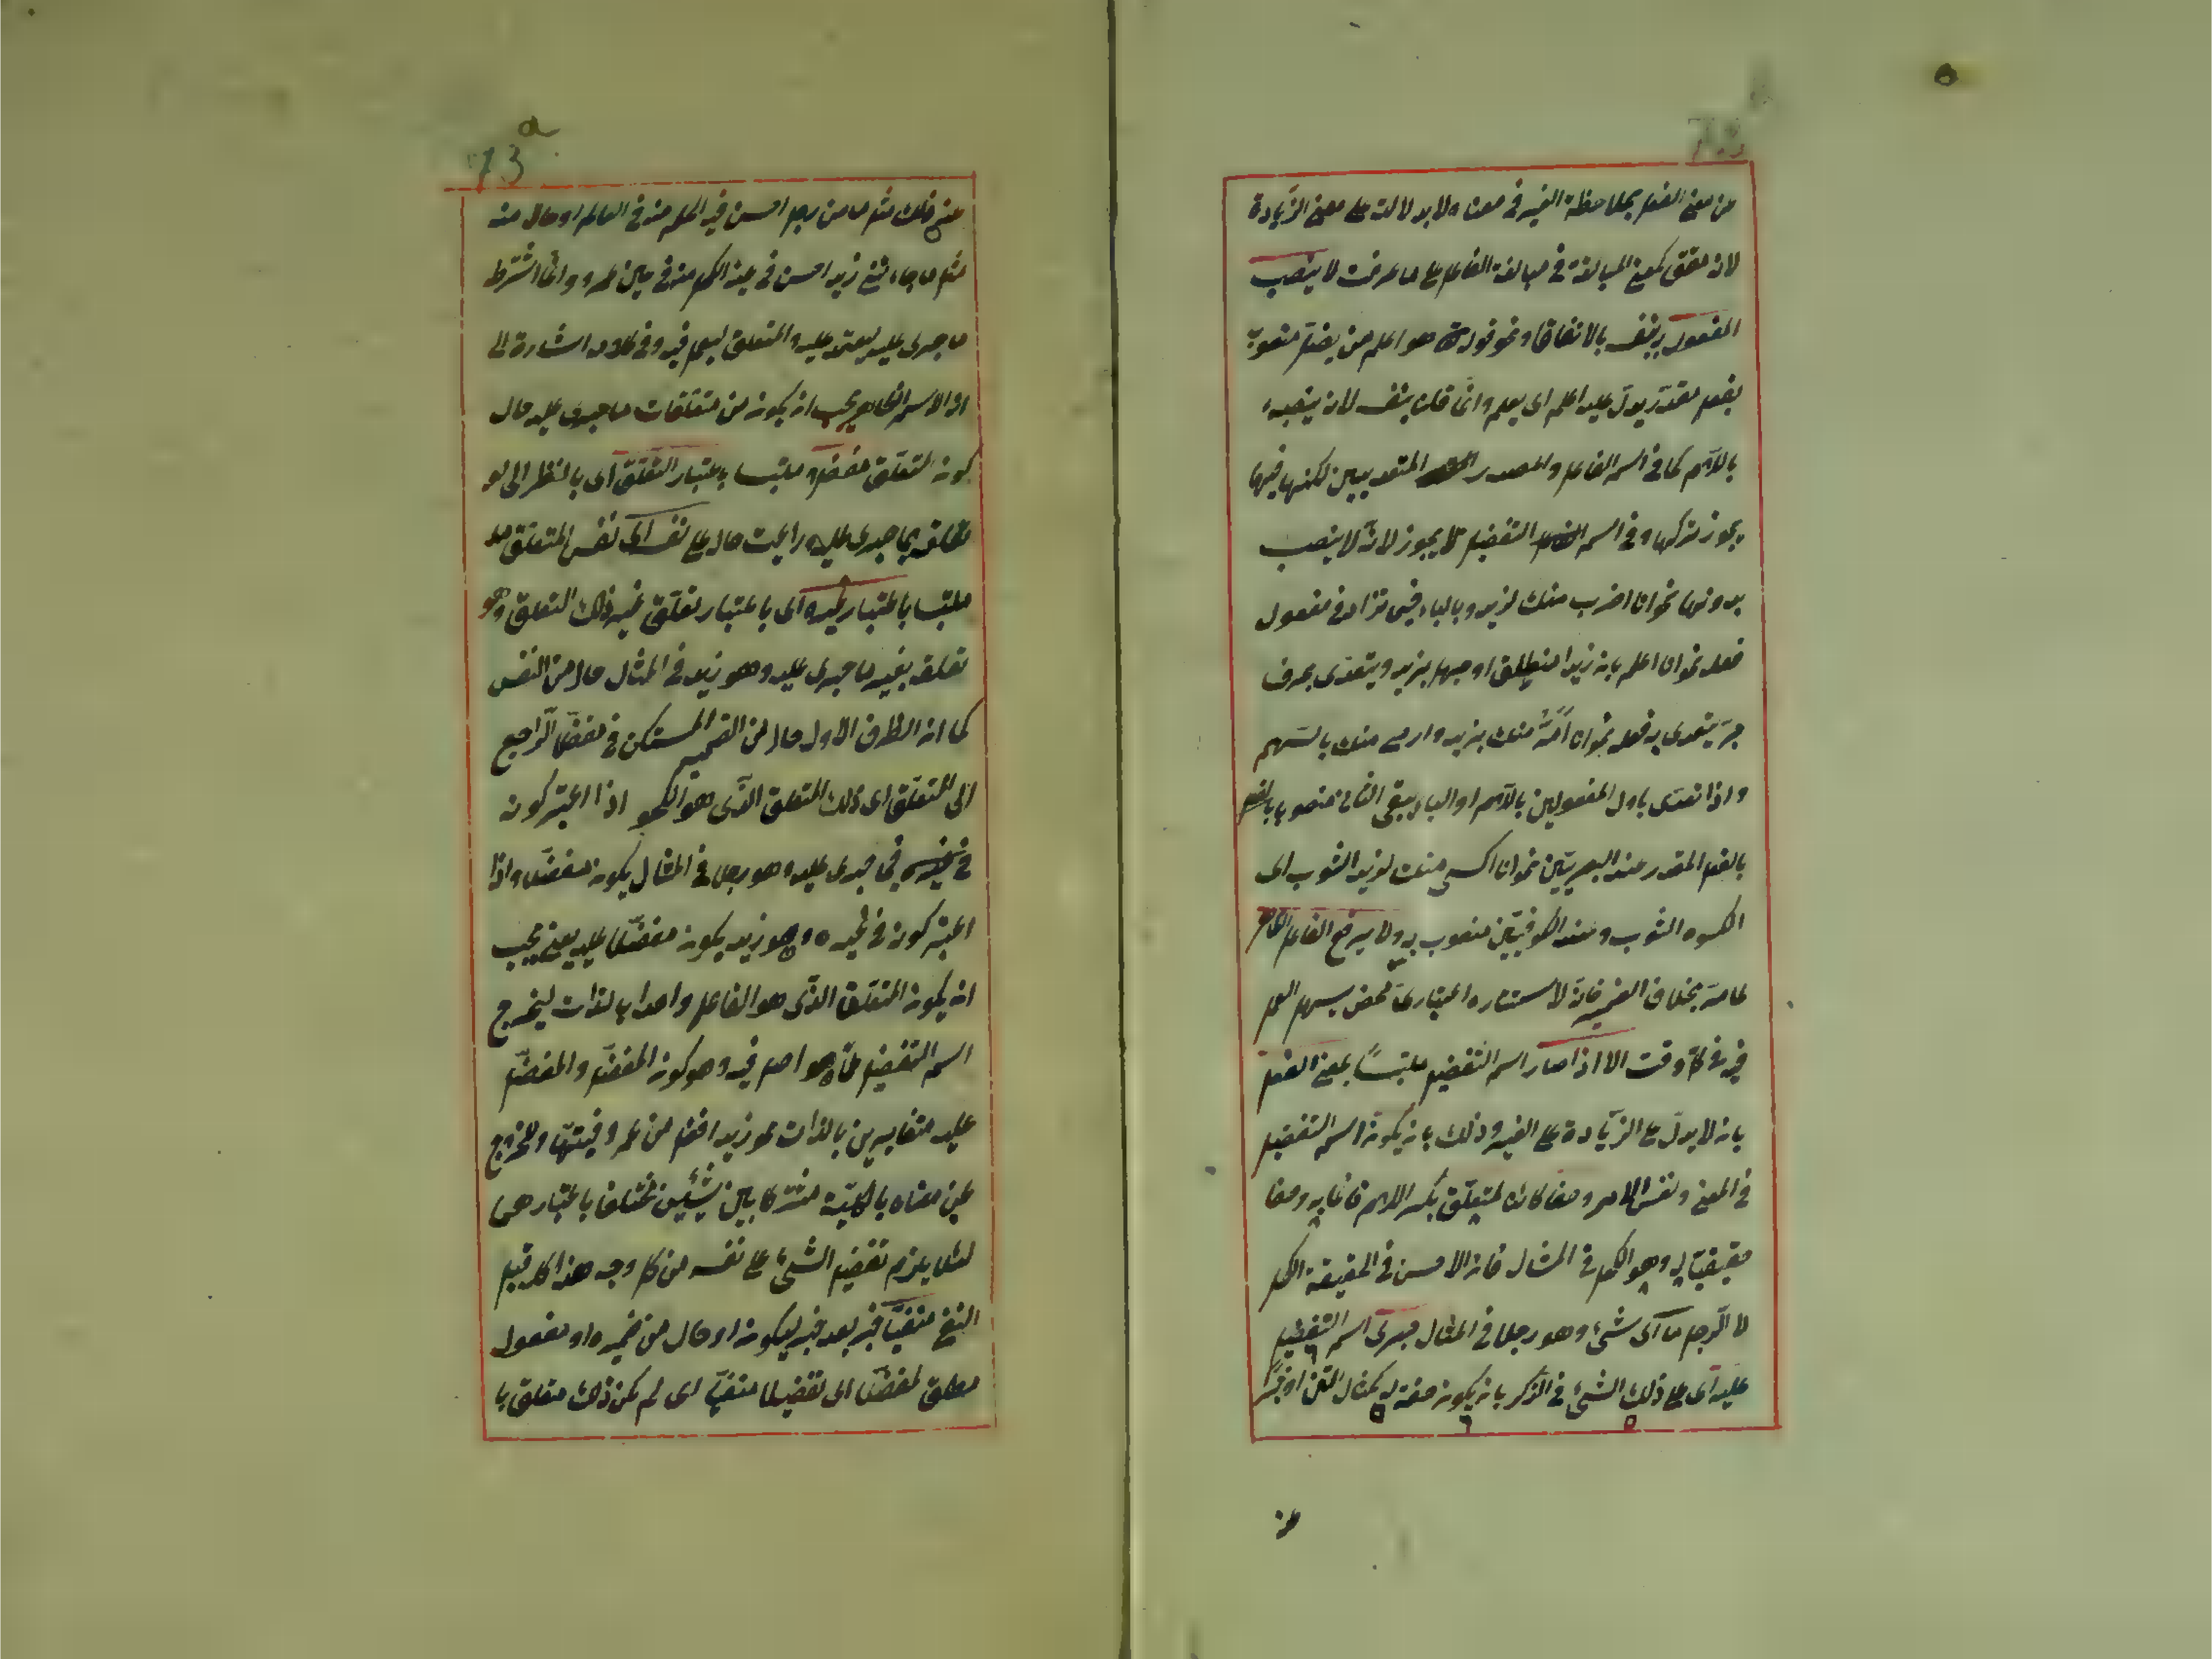 من معنى الفعل بملاحظة الغير في معناه لا بد لالت على معنى الزيادة
لانه محقق كمعنى المبالغة في مبالغة الفاعل على ما عرفت لا ينصب
المفعول به بنفسه بالاتفاق ونحو قوله هو اعلم من يضل منصوب
بفعل مقدر يدل عليه اعلم اى يعلم وانما قلنا بنفسه لانه ينصبه
باللام كما في اسم الفاعل والمصدر المتعديين لكنها فيهما
يجوز تركها وفي اسم التفضيل لا يجوز لانه لا ينصب
بدونها نحو انا اضرب منك لزيد وبالباء فيما تزاد في مفعول
فعله نحو انا اعلم بان زيدا منطلق او جهل بزيد ويتعدى بحرف
جر يتعدى به فعله نحو انا امر منك بزيد وارمى منك بالسهم
واذا تعدى باول المفعولين باللام او الباء يبقى الثاني منصوبا
بالفعل المقدر عند البصريين نحو انا اكسى منك لزيد الثوب اى
اكسوه الثوب وعند الكوفيين منصوب به ولا يرفع الفاعل الظاهر
بخلاف الضمير فانه لاستتاره اعتبارى محض يسهل العمل
فيه في كل وقت الا اذا صار اسم التفضيل ملتبسا بمعنى الفعل
بان لا يدل على الزيادة على الغير وذلك بان يكون اسم التفضيل
في المعنى ونفس الامر وصفا كائنا لمتعلق بكسر اللام قائما به وصفا
حقيقيا له وهو الكحل في المثال فان الاحسن في الحقيقة الكحل
لا الرجل ما اى شئ وهو رجلا في المثال جرى اسم التفضيل
عليه اى على ذلك الشئ في الذكر بان يكون صفة له كمثال المتن او خبرا
عنه
73 a
عنه فلك مثل ما من رجل احسن فيه الحلم منه في العالم او حالا منه
مثل ما جاءني زيد احسن في عينه الكحل منه في عين عمرو وانما اشترط
ما جرى عليه ليعتمد عليه والمتعلق ليعمل فيه وفي كلامه اشارة الى
ان الاسم الظاهر يجب ان يكون من متعلقات ما جرى عليه حال
كون المتعلق مفضلا ملتبسا باعتبار التعلق اى بالنظر الى
تعلقه بما جرى عليه راعيت حال على نفسه اى نفس المتعلق
ملتبسا باعتبار غيره اى باعتبار تعلق غير ذلك التعلق وهو
تعلقه بغير ما جرى عليه وهو زيد في المثال حال من النفس
كما ان الظرف الاول حال من الضمير المستكن في مفضلا الراجع
الى المتعلق اى ذلك المتعلق الذى هو الكحل اذا اعتبر كونه
في جرى عليه وهو رجلا في المثال يكون مفضلا واذا
اعتبر كونه في غيره وهو زيد يكون مفضلا عليه يعنى يجب
ان يكون المتعلق الذى هو الفاعل واحدا بالذات ليخرج
اسم التفضيل عما هو اصل فيه وهو كون المفضل والمفضل
عليه متغايرين بالذات نحو زيد افضل من عمرو
عن معناه بالكلية مشتركا بين شيئين مختلفا باعتبارهما
لئلا يلزم تفضيل الشئ على نفسه من كل وجه هذا كله قبل
النفى منفيا خبر بعد خبر ليكون او حال من ضميره او مفعول
مطلق لمفضلا اى تفضيلا منفيا اى لم يكن ذلك متعلق با